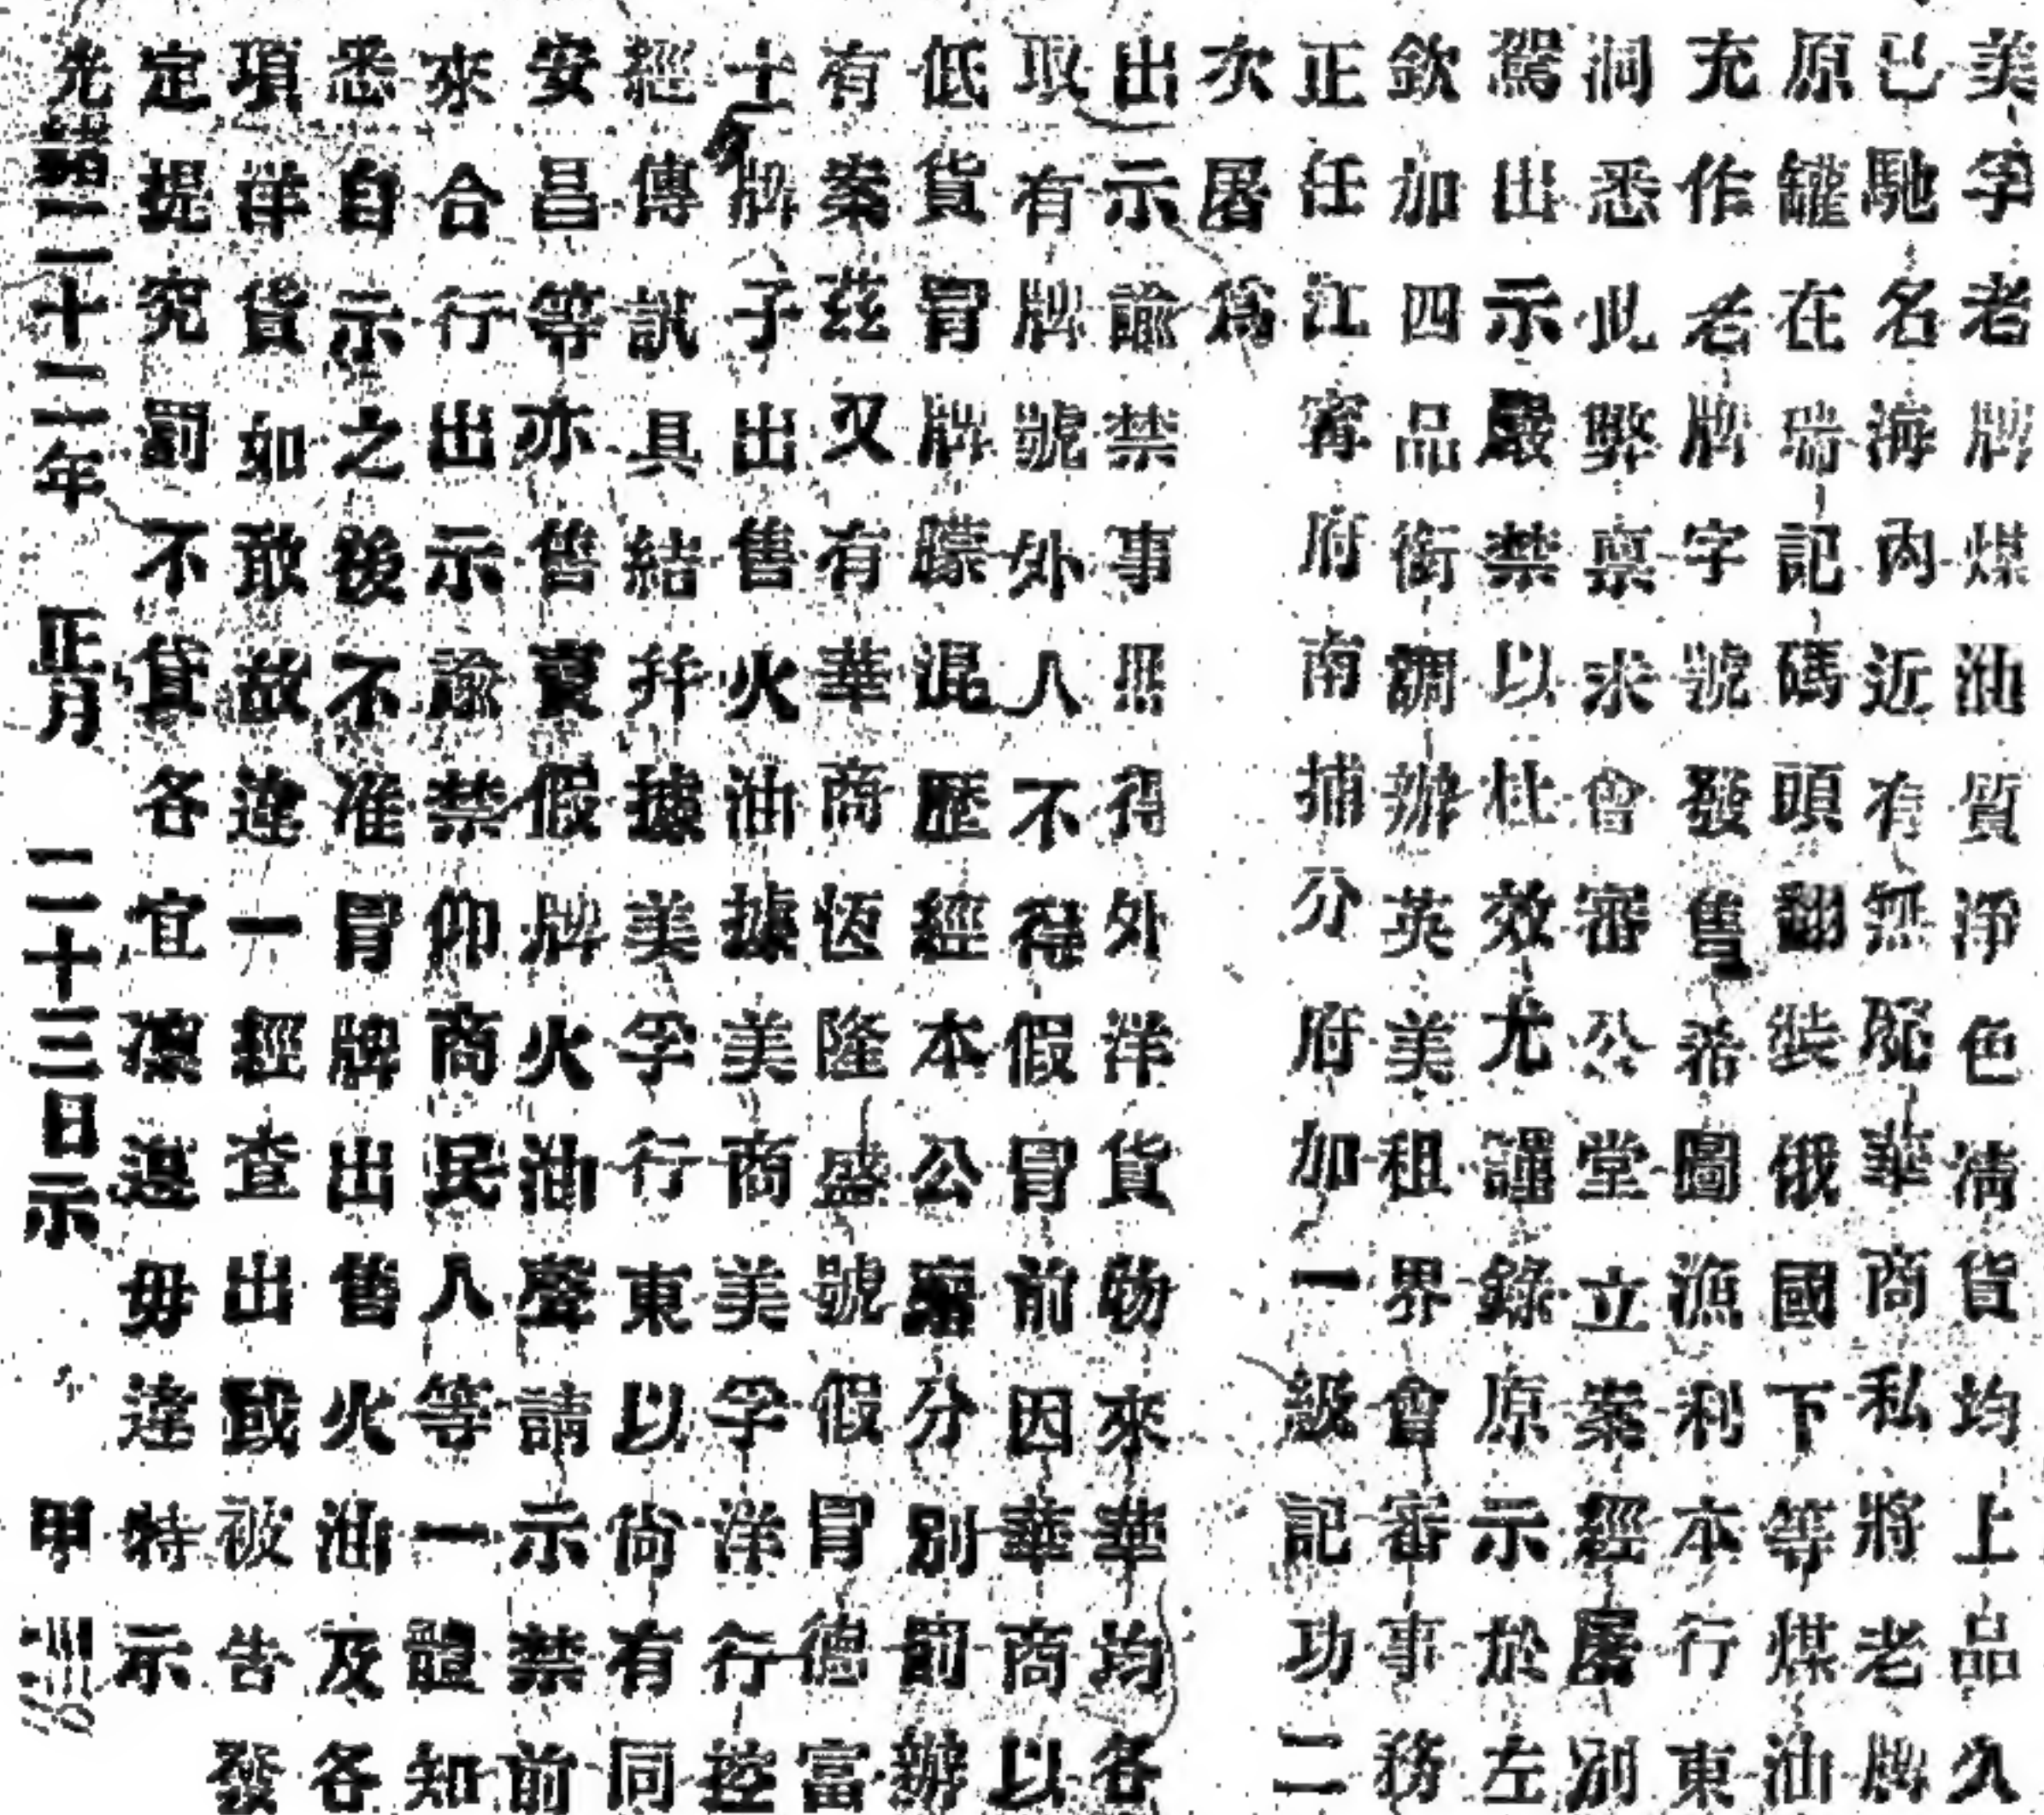 美孚老牌煤油質淨色清貨均上品久
已馳名海內近有無恥華商私將老牌
原罐在瑞記碼頭翻裝俄國下等煤油
充作老牌字號發售希圖漁利本行東
洞悉此弊稟求會審公堂立案經屠別
駕出示嚴禁以杜效尤謹錄原示於左
欽加四品銜調辦英美租界會審事務
正任江寗府南捕分府加一級記功二
次屠爲
出示諭禁事照得外洋貨物來華均各
取有牌號外人不得假冒前因華商以
低貨冒牌矇混歷經本公廨分別罰辦
有案茲又有華商恆隆盛號假冒德富
士牌子出售火油據美商美孚洋行控
經傳訊具結幷據美孚行東以尙有同
安昌等亦售賣假牌火油聲請示禁前
來合行出示諭禁仰商民人等一體知
悉自示之後不准冒牌出售火油及各
項洋貨如敢故違一經查出或被告發
定提究罰不貸各宜懍遵毋違特示
光緒二十二年 正月 二十三日示 甲